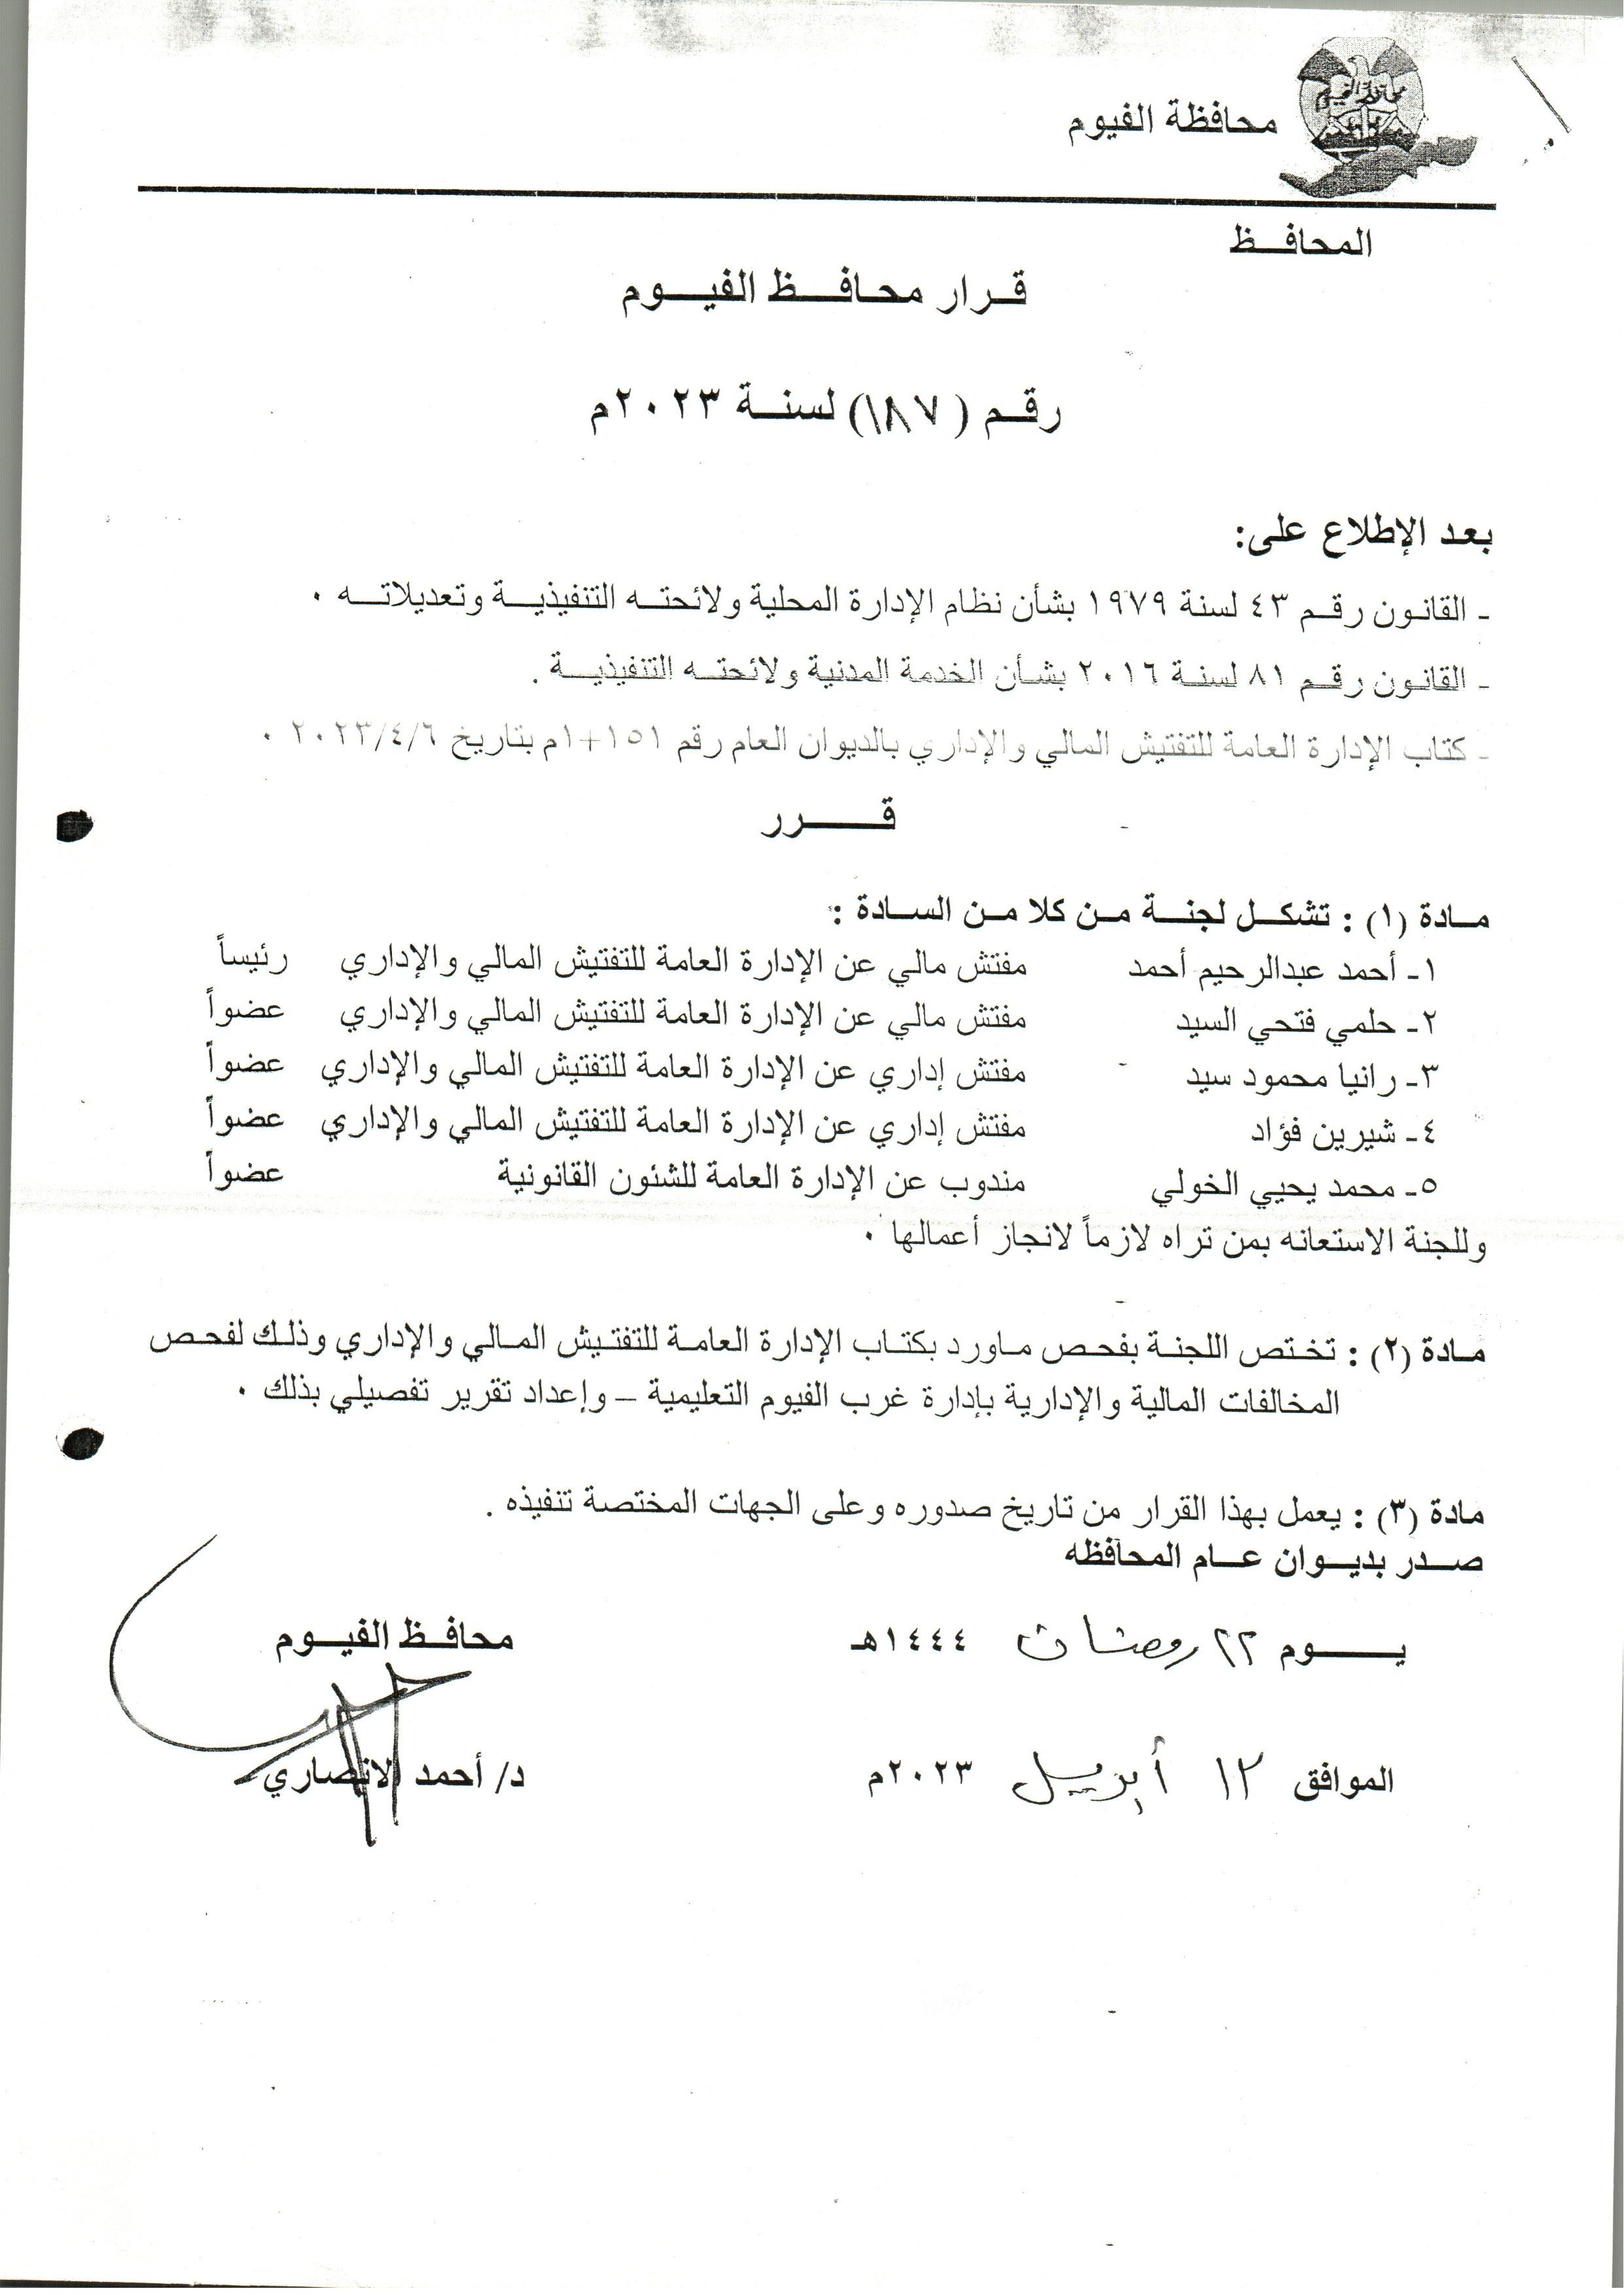 محافظة الفيوم
محافظة الفيوم
المحافـظ
قـرار محـافـظ الفيـوم
رقـم (١٨٧) لسنـة ٢٠٢٣م
بعد الإطلاع على:
- القانـون رقـم ٤٣ لسنة ١٩٧٩ بشأن نظام الإدارة المحلية ولائحتـه التنفيذيـة وتعديلاتـه .
- القانـون رقـم ٨١ لسنـة ٢٠١٦ بشـأن الخدمة المدنية ولائحتـه التنفيذيـة .
- كتاب الإدارة العامة للتفتيش المالي والإداري بالديوان العام رقم ١٥١+١م بتاريخ ٢٠٢٣/٤/٦ .
قــــرر
مـادة (١) : تشكـل لجنـة مـن كلا مـن السـادة :
١- أحمد عبدالرحيم أحمد مفتش مالي عن الإدارة العامة للتفتيش المالي والإداري رئيساً
٢- حلمي فتحي السيد مفتش مالي عن الإدارة العامة للتفتيش المالي والإداري عضواً
٣- رانيا محمود سيد مفتش إداري عن الإدارة العامة للتفتيش المالي والإداري عضواً
٤- شيرين فؤاد مفتش إداري عن الإدارة العامة للتفتيش المالي والإداري عضواً
٥- محمد يحيي الخولي مندوب عن الإدارة العامة للشئون القانونية عضواً
وللجنة الاستعانه بمن تراه لازماً لانجاز أعمالها .
مـادة (٢) : تختـص اللجنـة بفحـص مـاورد بكتـاب الإدارة العامـة للتفتـيش المـالي والإداري وذلـك لفحـص
المخالفات المالية والإدارية بإدارة غرب الفيوم التعليمية – وإعداد تقرير تفصيلي بذلك .
مادة (٣) : يعمل بهذا القرار من تاريخ صدوره وعلى الجهات المختصة تنفيذه .
صـدر بديـوان عـام المحافظه
يــــوم ٢٢ رمضان ١٤٤٤هـ
محافـظ الفيـوم
الموافق ١٢ أبريل ٢٠٢٣م
د/ أحمد الانصاري